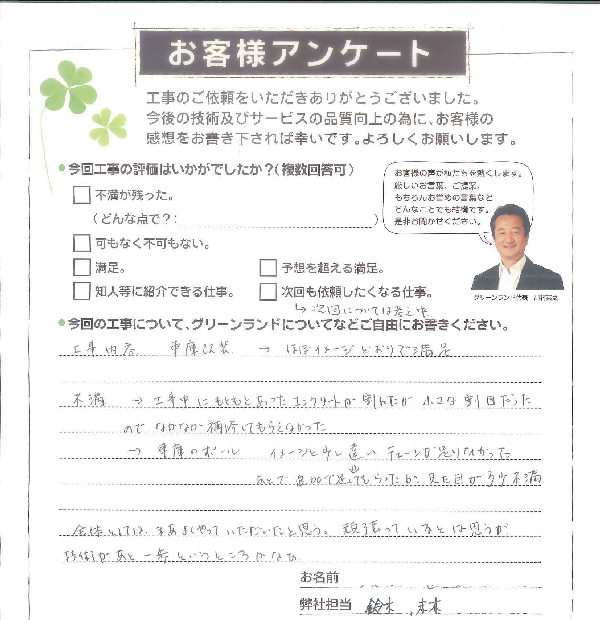 お客様アンケート
工事のご依頼をいただきありがとうございました。
今後の技術及びサービスの品質向上の為に、お客様の
感想をお書き下されば幸いです。よろしくお願いします。
●今回工事の評価はいかがでしたか?(複数回答可)
不満が残った。
(どんな点で?: )
可もなく不可もない。
満足。
予想を超える満足。
知人等に紹介できる仕事。
次回も依頼したくなる仕事。
お客様の声が私たちを熱くします。
厳しいお言葉、ご提案、
もちろんお誉めの言葉など
どんなことでも結構です。
是非お聞かせください。
グリーンランド代表
↳ 次回については考え中
●今回の工事について、グリーンランドについてなどご自由にお書きください。
工事内容 車庫改装 → ほぼイメージどおりで満足
不満 → 工事中にもともとあったコンクリートが割れたが 小さな割目だった
ので なかなか補修してもらえなかった
→ 車庫のポール イメージと少し違い チェーンが足りなかった
あとで追加で足してもらったが 見た目が多少不満
全体としては、まあまあやっていただいたと思う。頑張っているとは思うが
技術があと一歩というところかなぁ
お名前
弊社担当 鈴木、